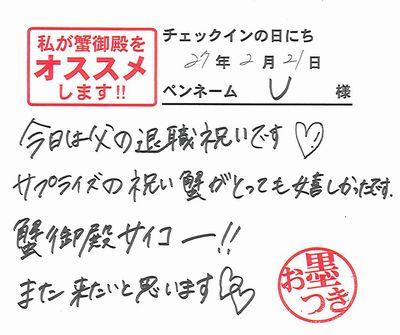 私が蟹御殿を
オススメ
します!!
チェックインの日にち
27年2月21日
ペンネーム U 様
今日は父の退職祝いです♡
サプライズの祝い蟹がとっても嬉しかったです.
蟹御殿サイコー!!
また来たいと思います♡
お墨つき